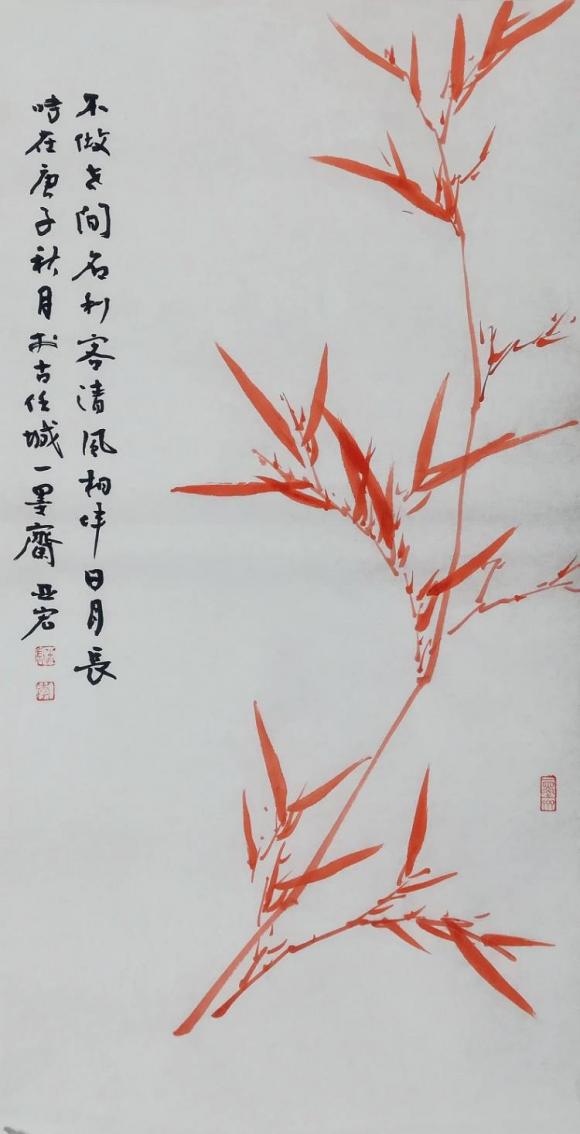 不做世间名利客清风相伴日月長
时在庚子秋月於古任城一墨齋 亚宏